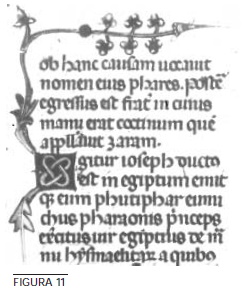 ob hanc causam uocauit
nomen eius phares. postē
egressus est frat̄ in cuius
manu erat coccinum quē
appllauit zaram.
Igitur ioseph ductꝰ
est in egiptum emit
q̄ eum phutiphar eunu
chus pharaonis p̄nceps
exc̄itus uir egiptius de m̄
nu hysmaelitaꝝ a quibꝰ
FIGURA 11